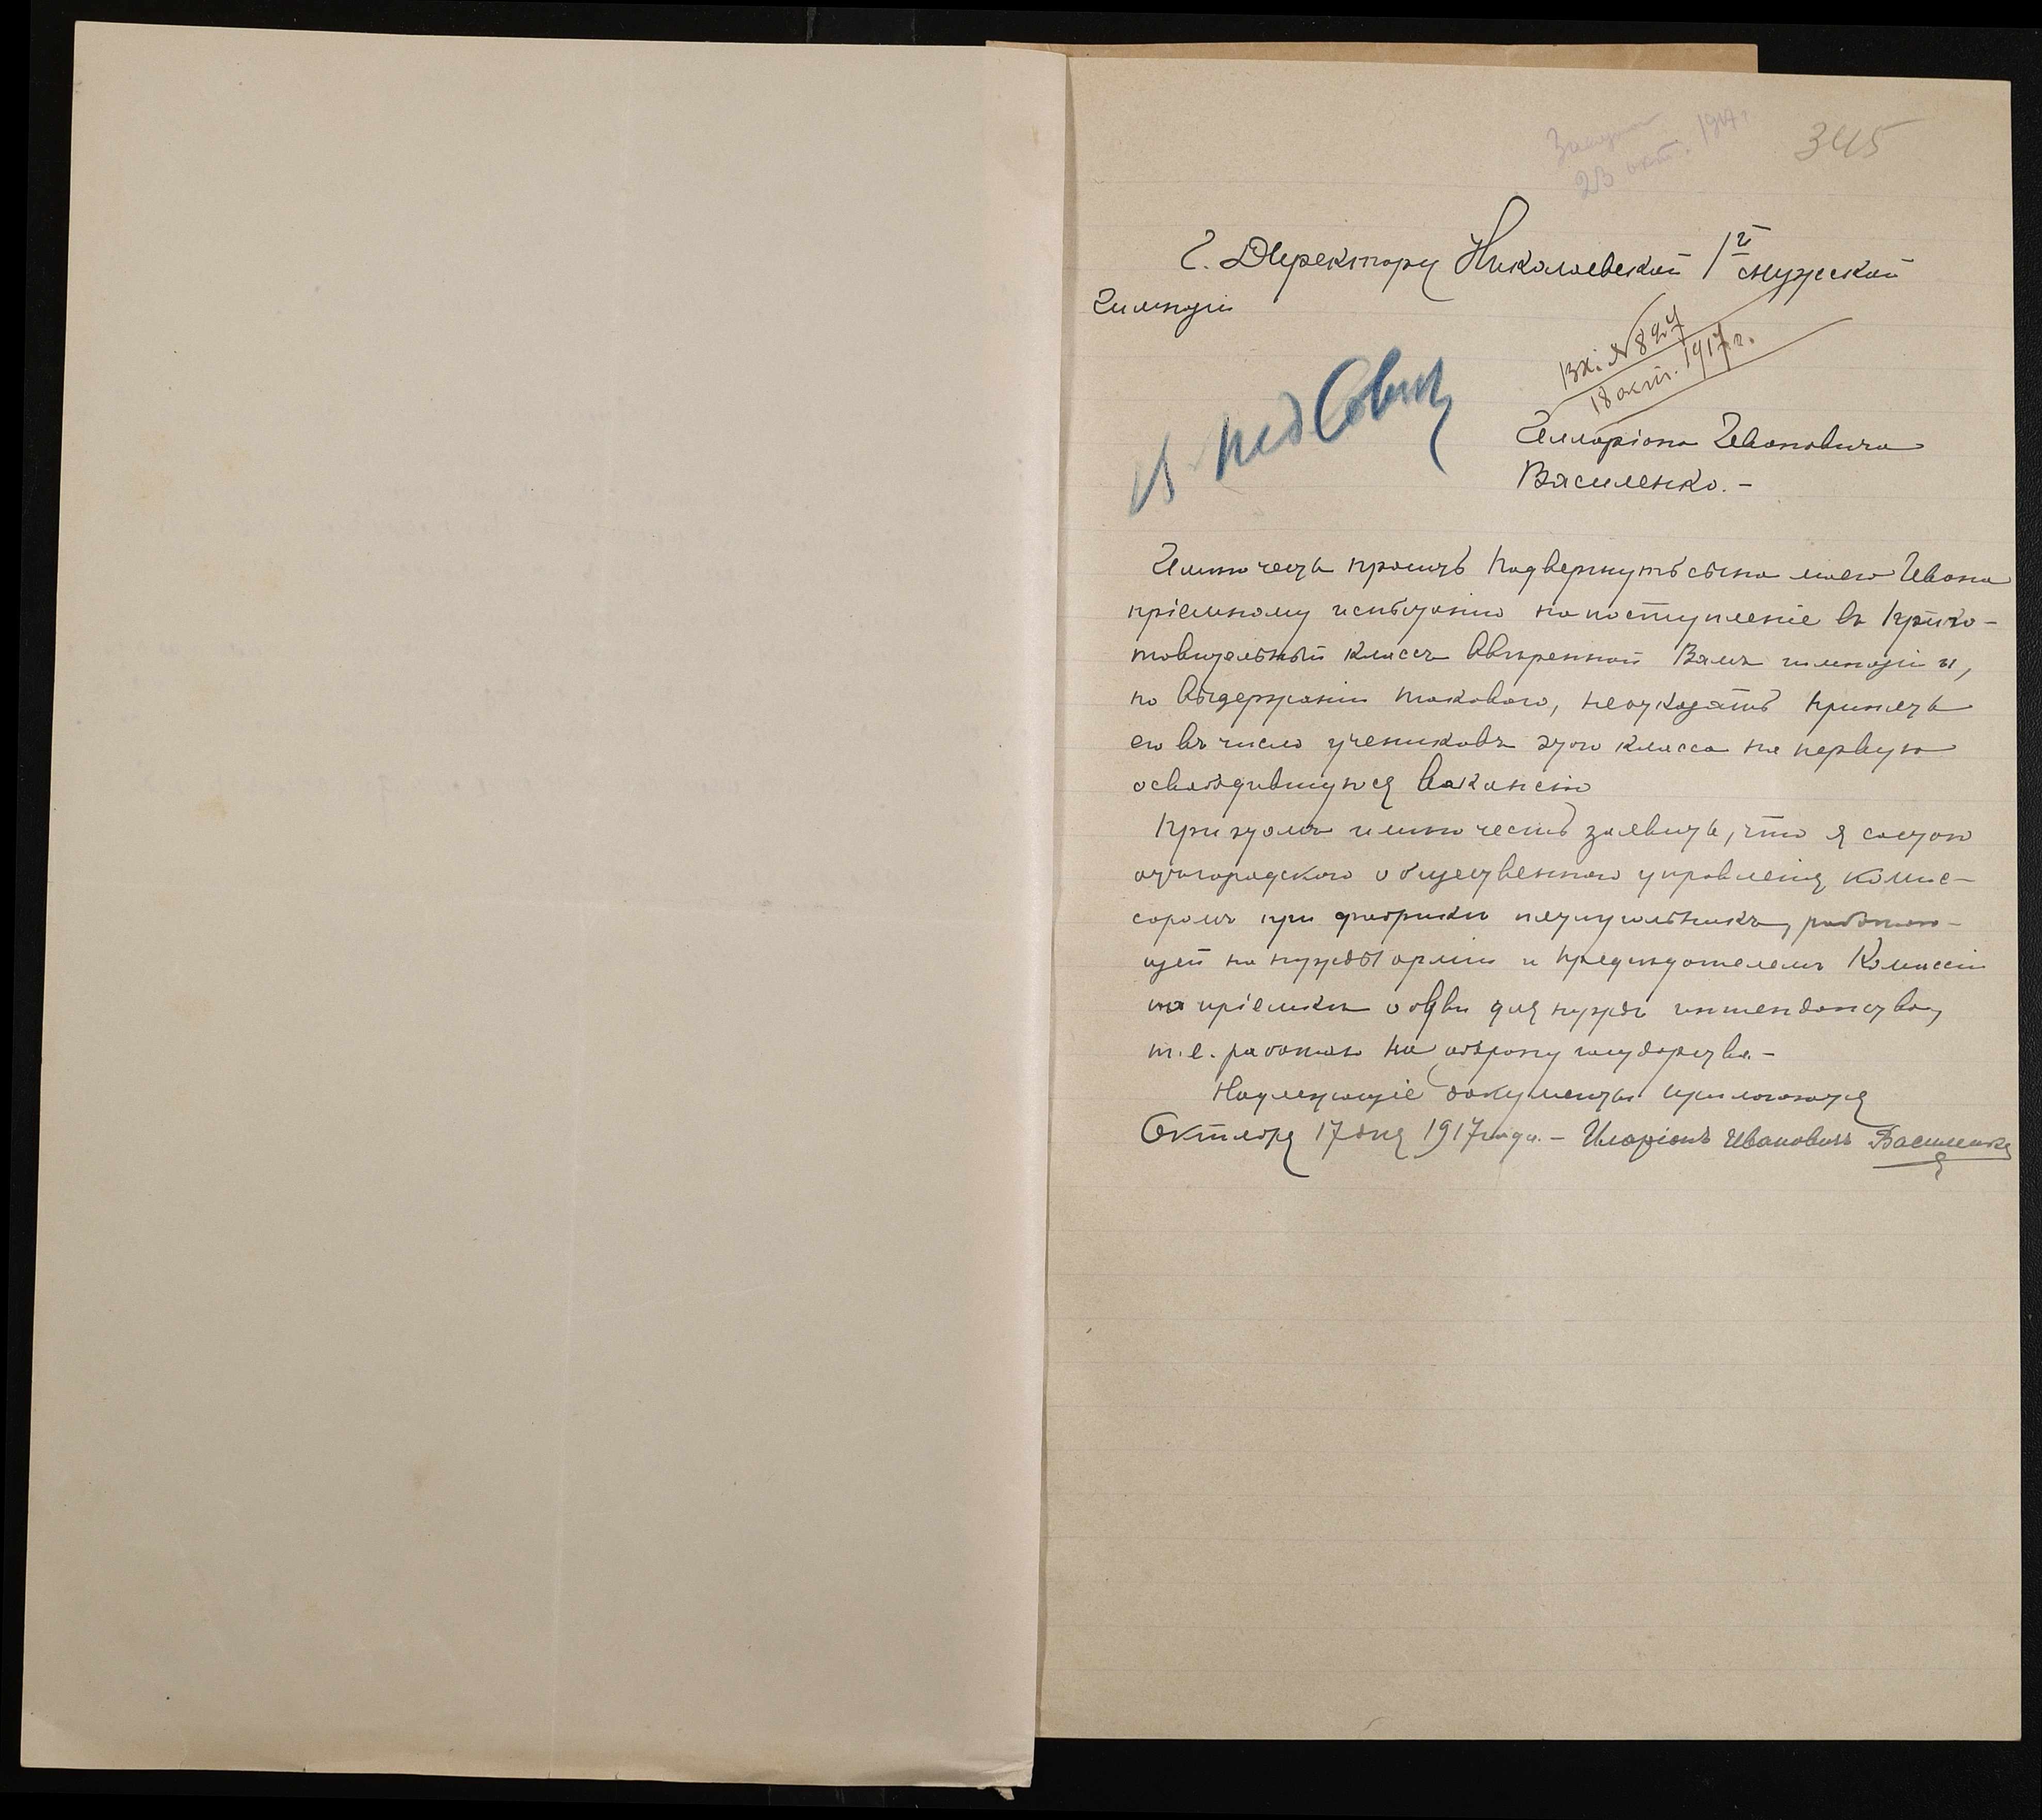 345
23 окт. 1917 г
Г. Директору Николаевской 1й мужской
Гимназiи
Вх. № 827
18 окт. 1917 г.
В педСовѣт
Иллариона Ивановича
Василенко. –
Имѣю честь просить подвергнуть сына моего Ивана
прiемному испытанiю на поступленiе въ Приго-
товительный классъ ввѣренной Вамъ гимназiи и,
по выдержанiи такового, не отказать принять
его въ число учениковъ этого класса на первую
освободившуюся вакансiю
При этомъ имѣю честь заявить, что я состою
отъ городского общественного управленiя комис-
саромъ при фабрикѣ работаю-
щей на нужды армiи и предсѣдателемъ Комиссiи
по прiемкѣ обуви для нуждъ интендантства,
т.е. работаю на оборону государства. –
Надлежащiе документы прилагаются
Октября 17 дня 1917 года. – Иларiонъ Ивановичъ Василенко